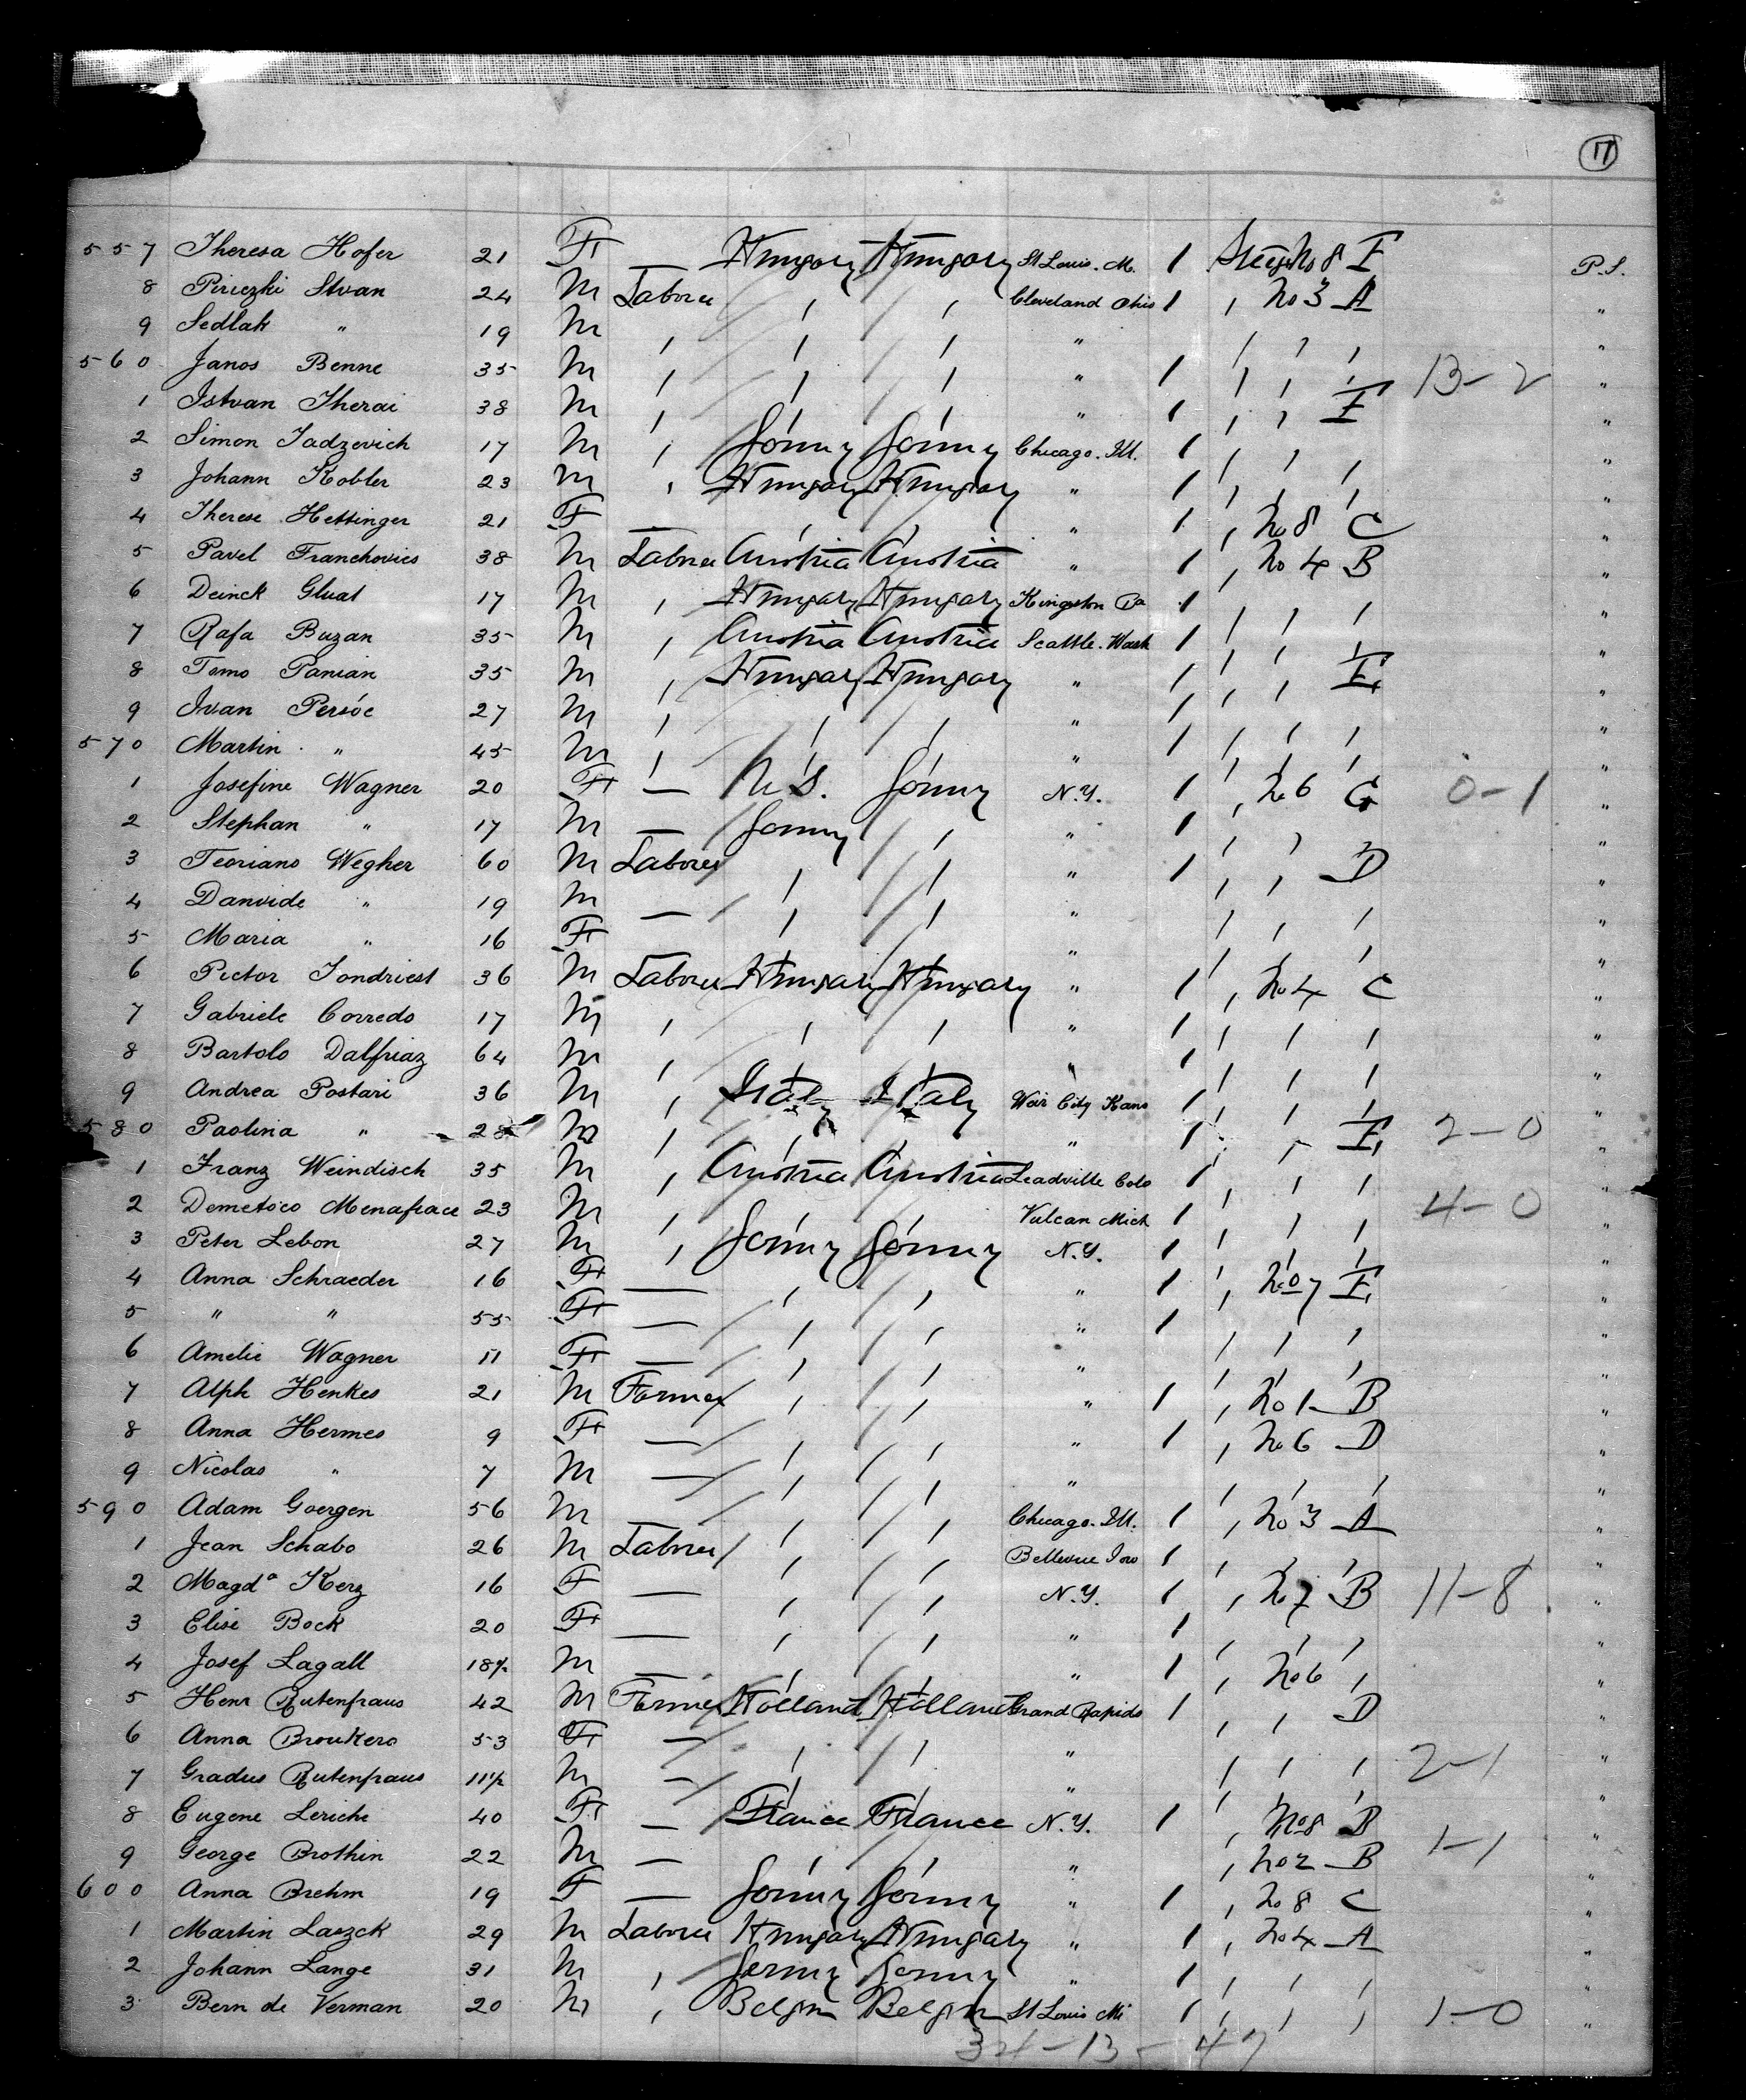 17
557 Theresa Hofer 21 F — Hungary Hungary St Louis. M. 1 Steer No 8 E P.S.
8 Piriczki Stvan 24 M Laborer , , Cleveland Ohio 1 , No 3 A "
9 Sedlak " 19 M , , , " , , , "
560 Janos Benne 35 M , , , " 1 , , , 13-2 "
1 Istvan Therai 38 M , , , " 1 , , E "
2 Simon Jadzevich 17 M , Germy Germy Chicago. Ill. 1 , , , "
3 Johann Kobler 23 M , Hungary Hungary " 1 , , , "
4 Therese Hettinger 21 F — , , " 1 , No 8 C "
5 Pavel Franchovics 38 M Laborer Austria Austria " 1 , No 4 B "
6 Deinck Gluat 17 M , Hungary Hungary Kingston Pa 1 , , , "
7 Rafa Buzan 35 M , Austria Austria Seattle. Wash 1 , , , "
8 Tomo Panian 35 M , Hungary Hungary " 1 , , E "
9 Ivan Persóc 27 M , , , " 1 , , , "
570 Martin " 45 M , , , " 1 , , , "
1 Josefine Wagner 20 F — U.S. Germy N.Y. 1 , No 6 G 0-1 "
2 Stephan " 17 M — Germy , " 1 , , , "
3 Teoriano Wegher 60 M Laborer , , " 1 , , D "
4 Danvide " 19 M — , , " , , , "
5 Maria " 16 F , , " , , , "
6 Pictor Jondriest 36 M Laborer Hungary Hungary " 1 , No 4 C "
7 Gabriele Corredo 17 M , , , " 1 , , , "
8 Bartolo Dalfriaz 64 M , , , " 1 , , , "
9 Andrea Postari 36 M , Italy Italy Weir City Kans 1 , , , "
580 Paolina " 28 M , , , " 1 , , E 2-0 "
1 Franz Weindisch 35 M , Austria Austria Leadville Colo 1 , , , "
2 Demetoco Menafrace 23 M , , , Vulcan Mich 1 , , , 4-0 "
3 Peter Lebon 27 M , Germy Germy N.Y. 1 , , , "
4 Anna Schraeder 16 F — , , " 1 , No 7 E "
5 " " 55 F — , , " 1 , , , "
6 Amelie Wagner 11 F — , , " , , , "
7 Alph Henkes 21 M Farmer , , " 1 , No 1 B "
8 Anna Hermes 9 F — , , " 1 , No 6 D "
9 Nicolas " 7 M — , , " , , , "
590 Adam Goergen 56 M — , , Chicago. Ill. 1 , No 3 A "
1 Jean Schabo 26 M Laborer , , Bellevue Iow 1 , , , "
2 Magdª Kerz 16 F — , , N.Y. 1 , No 7 B 11-8 "
3 Elise Bock 20 F — , , " 1 , , , "
4 Josef Lagall 18½ M — , , " 1 , No 6 , "
5 Henr Rutenfraus 42 M Farmer Holland Holland Grand Rapids 1 , , D "
6 Anna Broukers 53 F — , , " , , , 2-1 "
7 Gradus Rutenfraus 11½ M — , , " , , , "
8 Eugene Leriche 40 F — France France N.Y. 1 , No 8 B "
9 George Brothin 22 M — , , " , No 2 B 1-1 "
600 Anna Brehm 19 F — Germy Germy " 1 , No 8 C "
1 Martin Laszck 29 M Laborer Hungary Hungary " 1 , No 4 A "
2 Johann Lange 31 M , Germy Germy " 1 , , , "
3 Bern de Verman 20 M , Belgm Belgm St Louis Mi 1 , , , 1-0 "
34-13-47